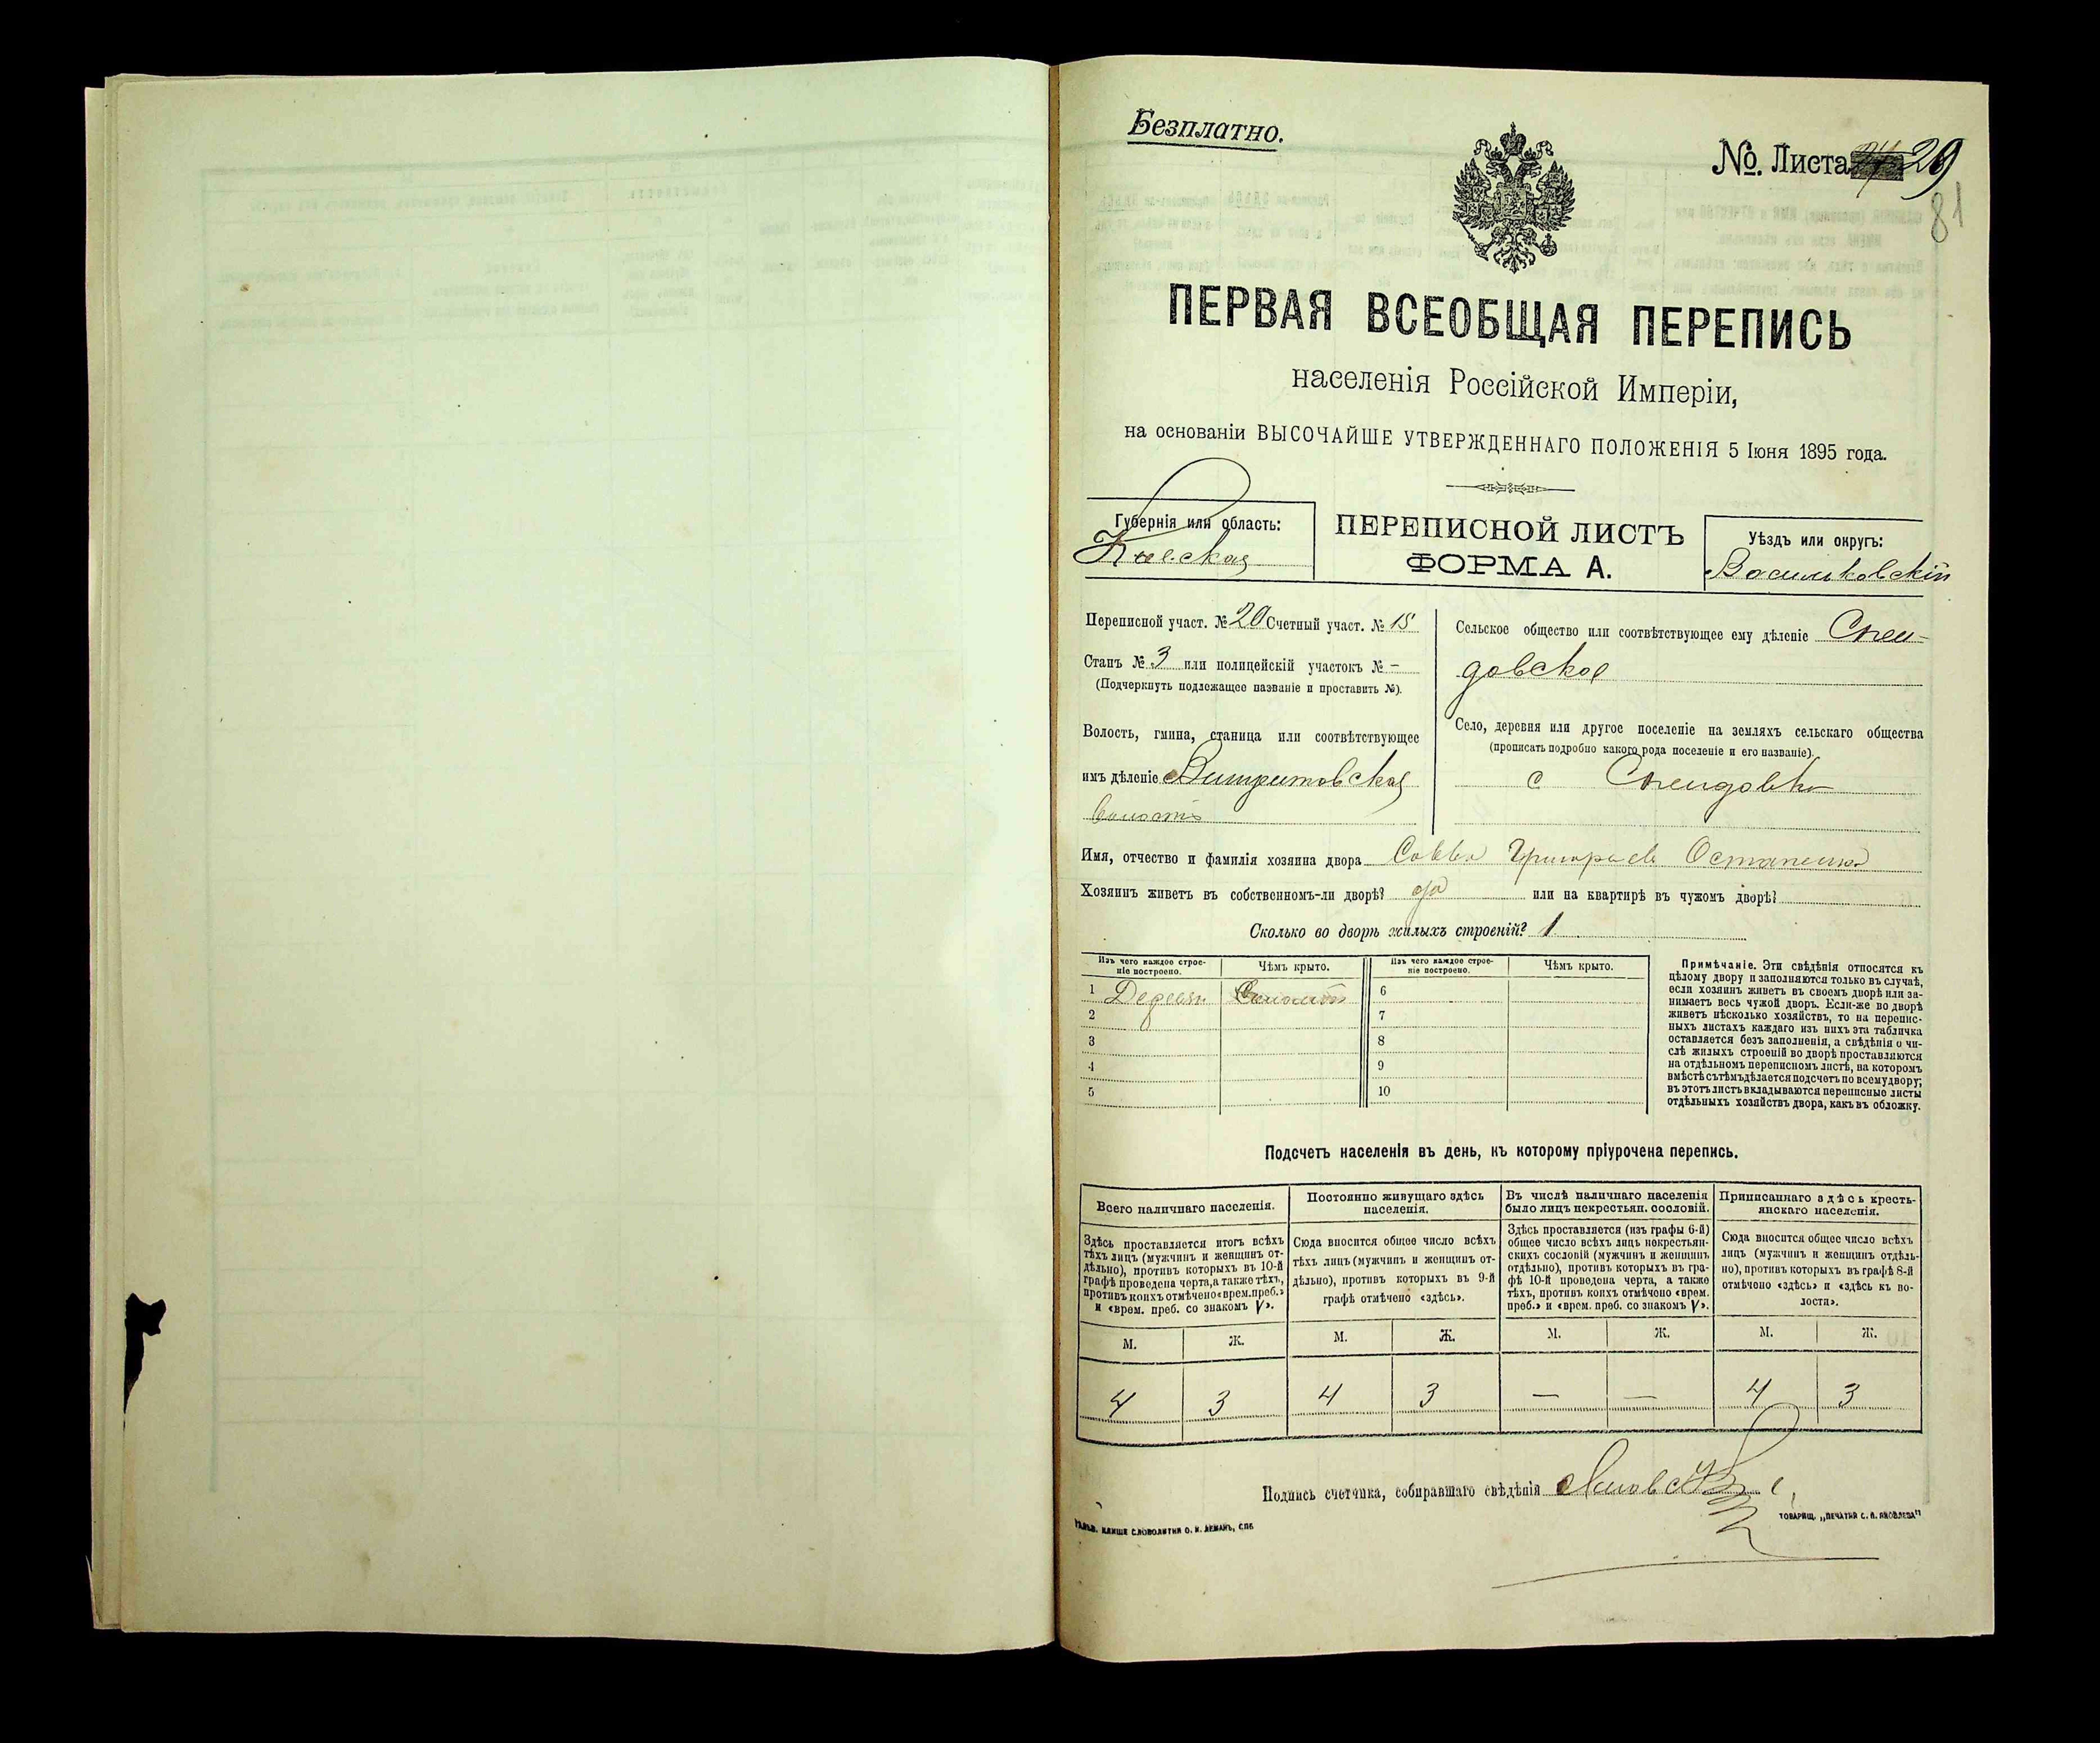 Безплатно.
№. Листа 29
81
ПЕРВАЯ ВСЕОБЩАЯ ПЕРЕПИСЬ
населенія Россійской Имперіи,
на основаніи ВЫСОЧАЙШЕ УТВЕРЖДЕННАГО ПОЛОЖЕНІЯ 5 Іюня 1895 года.
Губернія или область:
Кіевская
ПЕРЕПИСНОЙ ЛИСТЪ
ФОРМА А.
Уѣздъ или округъ:
Васильковскій
Переписной участ. № 20 Счетный участ. № 15
Станъ № 3 или полицейскій участокъ № –
(Подчеркнуть подлежащее названіе и проставить №).
Волость, гмина, станица или соотвѣтствующее
имъ дѣленіе
волость
Сельское общество или соотвѣтствующее ему дѣленіе Спен-
довское
Село, деревня или другое поселеніе на земляхъ сельскаго общества
(прописать подробно какого рода поселеніе и его названіе).
с Спендовка
Имя, отчество и фамилія хозяина двора Савва Григорьевъ Остапенко
Хозяинъ живетъ въ собственномъ-ли дворѣ? да или на квартирѣ въ чужомъ дворѣ?
Сколько во дворѣ жилыхъ строеній? 1
Изъ чего каждое строе-
ніе построено.
Чѣмъ крыто.
Изъ чего каждое строе-
ніе построено.
Чѣмъ крыто.
1 Дерева Соломой 6
2 7
3 8
4 9
5 10
Примѣчаніе. Эти свѣдѣнія относятся къ
цѣлому двору и заполняются только въ случаѣ,
если хозяинъ живетъ въ своемъ дворѣ или за-
нимаетъ весь чужой дворъ. Если-же во дворѣ
живетъ нѣсколько хозяйствъ, то на перепис-
ныхъ листахъ каждаго изъ нихъ эта табличка
оставляется безъ заполненія, а свѣдѣнія о чи-
слѣ жилыхъ строеній во дворѣ проставляются
на отдѣльномъ переписномъ листѣ, на которомъ
вмѣстѣ съ тѣмъ дѣлается подсчетъ по всему двору;
въ этотъ листъ вкладываются переписные листы
отдѣльныхъ хозяйствъ двора, какъ въ обложку.
Подсчетъ населенія въ день, къ которому пріурочена перепись.
Всего наличнаго населенія.
Здѣсь проставляется итогъ всѣхъ
тѣхъ лицъ (мужчинъ и женщинъ от-
дѣльно), противъ которыхъ въ 10-й
графѣ проведена черта, а также тѣхъ,
противъ коихъ отмѣчено «врем. преб.»
и «врем. преб. со знакомъ V».
Постоянно живущаго здѣсь
населенія.
Сюда вносится общее число всѣхъ
тѣхъ лицъ (мужчинъ и женщинъ от-
дѣльно), противъ которыхъ въ 9-й
графѣ отмѣчено «здѣсь».
Въ числѣ наличнаго населенія
было лицъ некрестьян. сословій.
Здѣсь проставляется (изъ графы 6-й)
общее число всѣхъ лицъ некрестьян-
скихъ сословій (мужчинъ и женщинъ
отдѣльно), противъ которыхъ въ гра-
фѣ 10-й проведена черта, а также
тѣхъ, противъ коихъ отмѣчено «врем.
преб.» и «врем. преб. со знакомъ V».
Приписаннаго здѣсь кресть-
янскаго населенія.
Сюда вносится общее число всѣхъ
лицъ (мужчинъ и женщинъ отдѣль-
но), противъ которыхъ въ графѣ 8-й
отмѣчено «здѣсь» и «здѣсь къ во-
лости».
М. Ж. М. Ж. М. Ж. М. Ж.
4 3 4 3 — — 4 3
Подпись счетчика, собиравшаго свѣдѣнія
СЛОВОЛИТНЯ О. И. ЛЕМАНЪ, СПБ
ТОВАРИЩ. „ПЕЧАТНЯ С. П. ЯКОВЛЕВА"